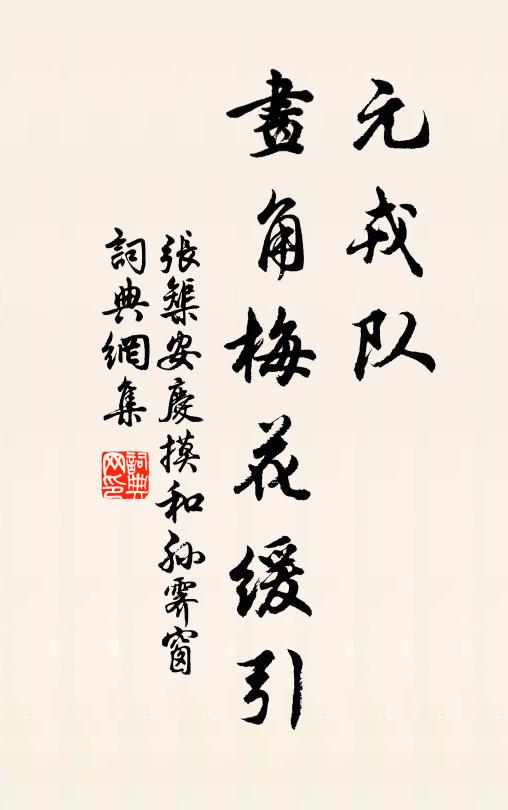 元戎队
畫角梅花缓引
張榘安慶摸和孙霽窗
詞典網集
詞典网印